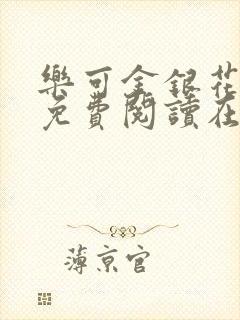 樂可金銀花
免費閱讀在
薄京官